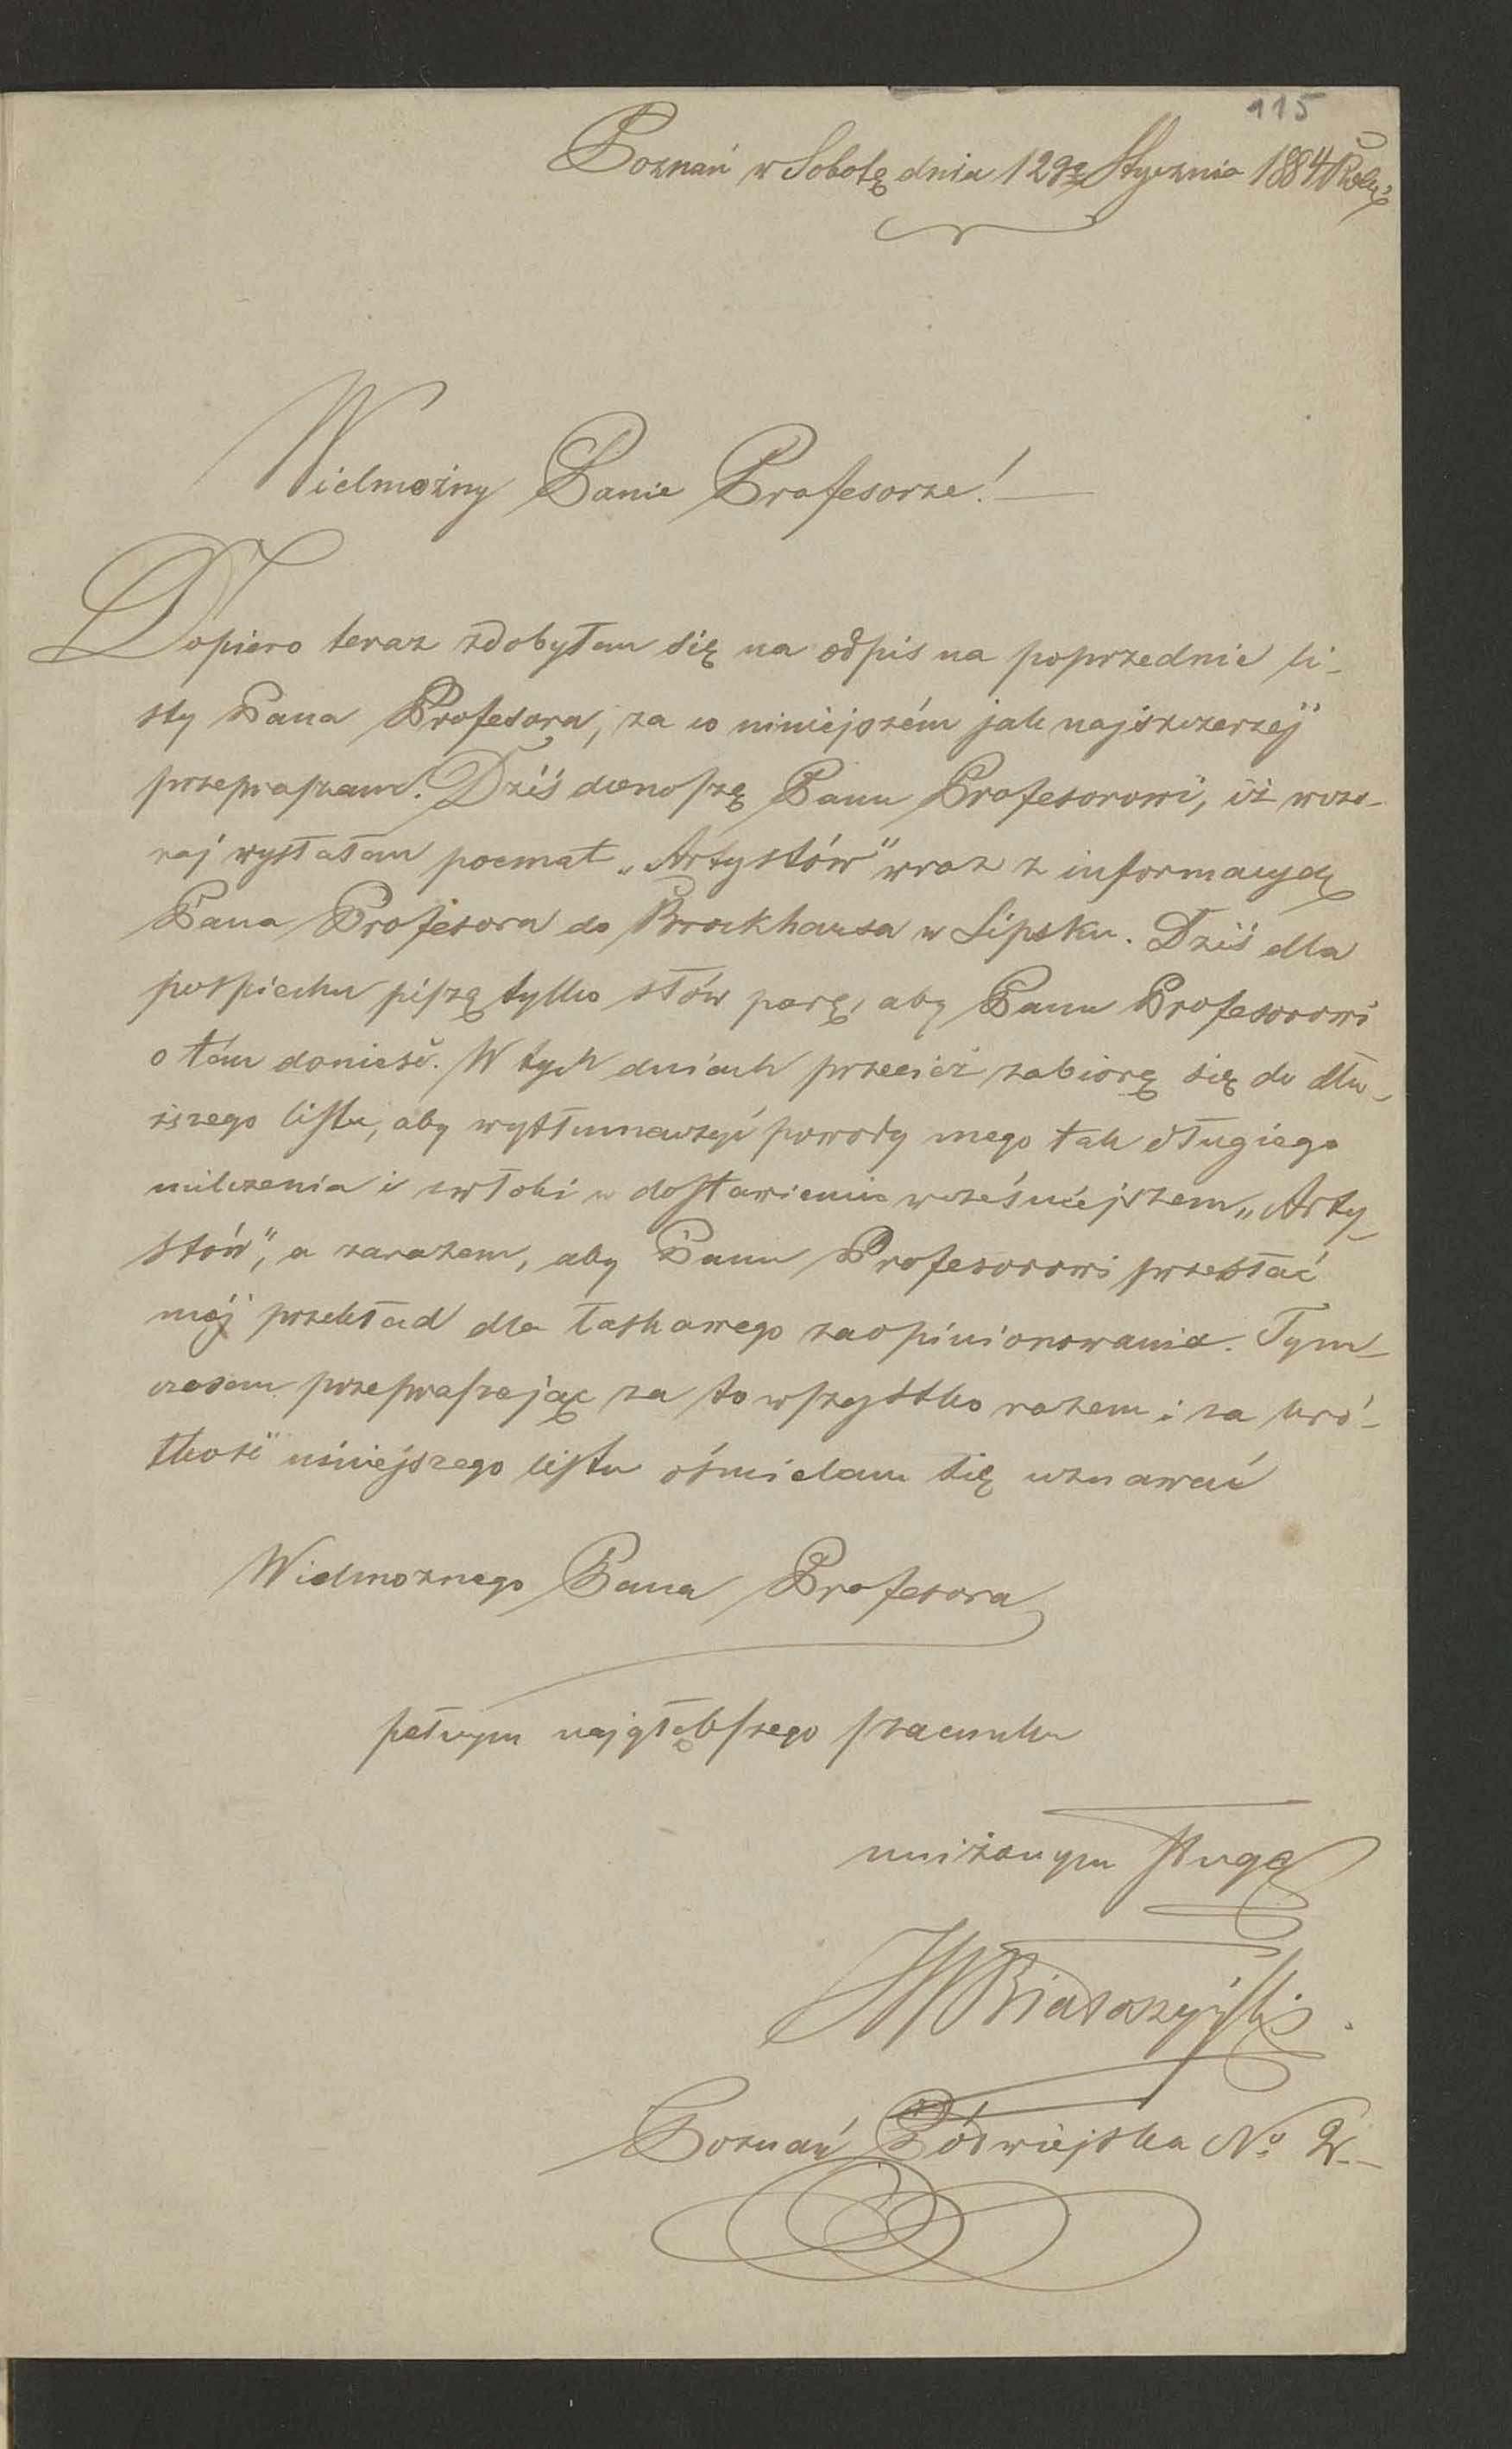 115
Poznań w Sobotę dnia 12go Stycznia 1884 Roku
Wielmożny Panie Profesorze! —
Dopiero teraz zdobyłem się na odpis na poprzednie li-
sty Pana Profesora, za co niniejszém jak najszczerzéj
przepraszam. Dziś donoszę Panu Profesorowi, iż wczo-
raj wysłałem poemat „Artystów" wraz z informacyą
Pana Profesora do Brockhausa w Lipsku. Dziś dla
pospiechu piszę tylko słów parę, aby Panu Profesorowi
o tém donieść. W tych dniach przecież zabiorę się do dłu-
ższego listu, aby wytłumaczyć powody mego tak długiego
milczenia i zwłoki w dostawieniu wcześniejszem „Arty-
stów", a zarazem, aby Panu Profesorowi przesłać
mój przekład dla łaskawego zaopiniowania. Tym-
czasem przepraszając za to wszystko razem i za kró-
tkość niniejszego listu ośmielam się uznawać
Wielmoznego Pana Profesora
pełnym najgłębszego szacunku
uniżonym sługą
Poznań Półwiejska No 2. –